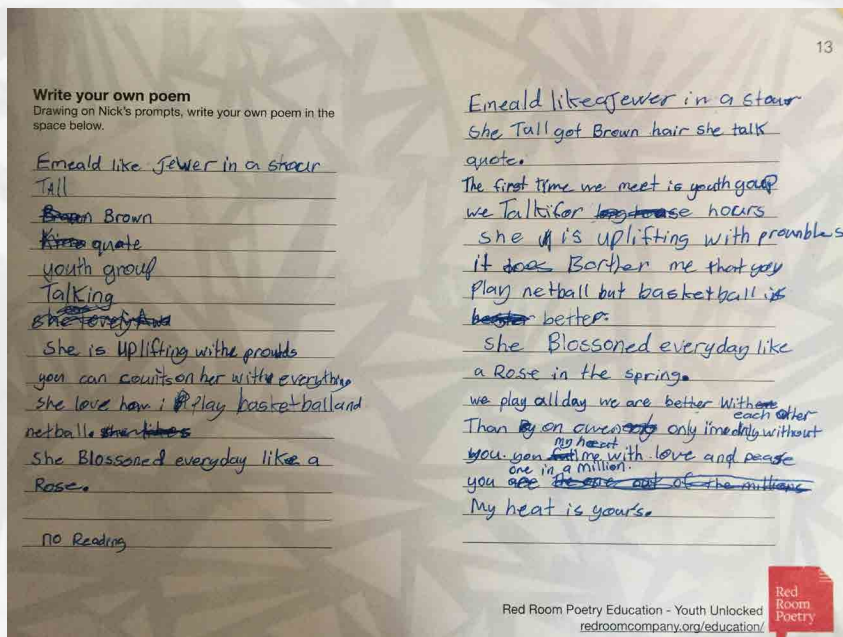 13
Write your own poem
Drawing on Nick's prompts, write your own poem in the
space below.
Emeald like Jewer in a shour
TAll
Brown
quote
youth group
Talking
She is UPlifting withe proulds
you can counts on her withe everything
she love how i Play basketball and
netball.
She Blossoned everyday like a
Rose.
no Reading
Emeald like a Jewer in a stour
She Tall got Brown hair she talk
quote.
The first time we meet is youth goup
we Talk for hours
she is uplifting with prounbles
it does Borther me that you
Play netball but basketball is
better.
She Blossoned everyday like
a Rose in the spring.
we play all day we are better with
each other
Than on owen only without
my heart
you. you me with love and pease
one in a million.
you are
My heat is yours.
Red Room Poetry Education - Youth Unlocked
redroomcompany.org/education/
Red
Room
Poetry